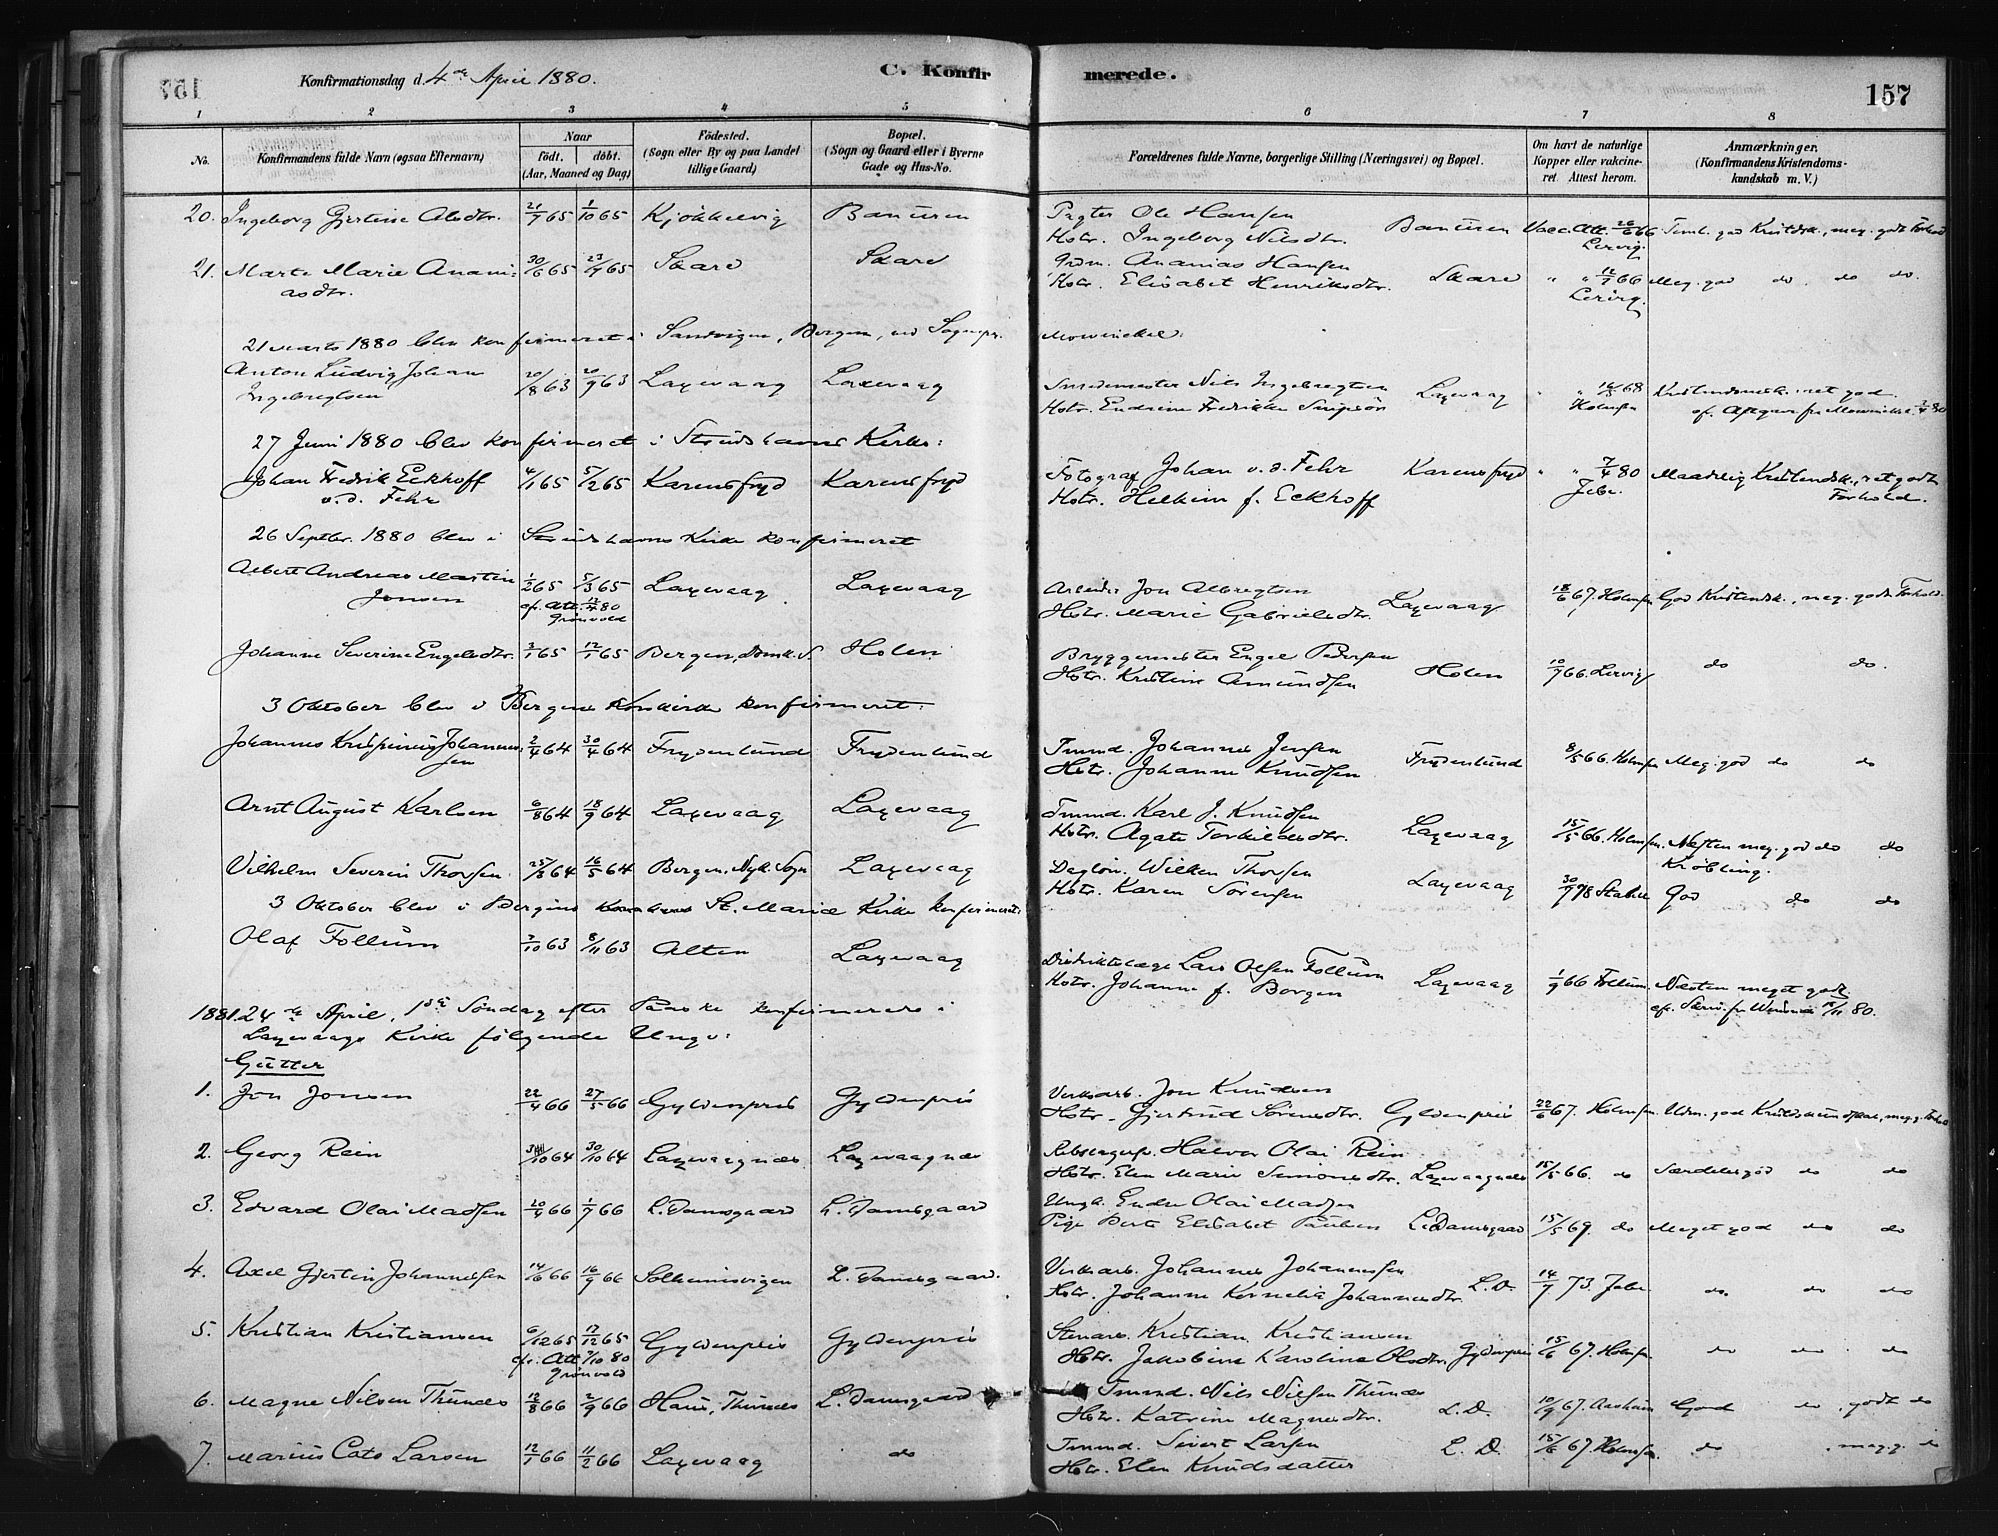 157
Konfirmationsdag d. 4de April 1880.
C. Konfirmerede.
157
1 2 3 4 5 6 7 8
No.
Konfirmandens fulde Navn (ogsaa Efternavn)
Naar
født. døbt.
(Aar, Maaned og Dag)
Fødested.
(Sogn eller By og paa Landet tillige Gaard)
Bopæl.
(Sogn og Gaard eller i Byerne Gade og Hus-No.
Forældrenes fulde Navne, borgerlige Stilling (Næringsvei) og Bopæl.
Om havt de naturlige Kopper eller vakcineret Attest herom.
Anmærkninger.
(Konfirmandens Kristendomskundskab m. V.)
20. Ingeborg Gjertine Olsdtr. 21/7 65 1/10 65 Kjøkkelvig Baneuren
Ole Hansen
Hstr. Ingeborg Nilsdtr. Baneuren Vacc. Att. 26/6 66 Lervig.
21. Marte Marie Ananiasdtr. 30/6 65 23/7 65 Skare Skare
Grdm. Ananias Hansen
Hstr. Elisabet Henriksdtr. Skare " " 12/7 66 Lervig. Meg. god do do do.
21 Marts 1880 blev konfirmeret i Sandvigen, Bergen, ved Sogenpr. Mowinckel:
Anton Ludvig Johan Ingebregtsen 20/8 63 20/9 63 Laxevaag Laxevaag
Smedemester Nils Ingebregtsen
Hstr. Endrine Fredrikke Laxevaag " " 68 Holmsen Kristendomsk. ret god.
27 Juni 1880 blev konfirmeret i Strudshavns Kirke:
Johan Fredrik Eckhoff v.d. Fehr 4/1 65 5/2 65 Karensfryd Karensfryd
Fotograf Johan v. d. Fehr
Hstr. f. Eckhoff Karensfryd " " 7/4 80 Jebe. Maadelig Kristendsk., ret godt Forhold.
26 Septbr. 1880 blev i Strudshavns Kirke konfirmeret
Albert Andreas Martin Jonsen 1/2 65 5/3 65 Laxevaag Laxevaag
cf. Att. 80 Grönvold
Arbeider Jon Albregtsen
Hstr. Marie Gabrielsdtr. Laxevaag 18/6 67. Holmsen God Kristendsk., meg. godt Forhold.
Johanne Severine Engelsdtr. 2/1 65 12/1 65 Bergen, Domk. S. Holen
Bryggermester Engel Pedersen
Hstr. Kristine Amundsen Holen 10/7 66. Lervig do do.
3 Oktober blev i Bergens Korskirke konfirmeret:
Johannes Johannessen 2/4 64 30/4 64 Frydenlund Frydenlund
Tmmd. Johannes Jensen
Hstr. Johanne Knudsen Frydenlund 8/5 66. Holmsen Meg. god do do
Arnt August Karlsen 6/8 64 18/9 64 Laxevaag Laxevaag
Tmmd. Karl J. Knudsen
Hstr. Agate Torkildsdtr. Laxevaag 15/5 66. Holmsen. Næsten meg. god do do
Krøbling.
Vilhelm Severin Thorsen 64 16/5 64 Bergen, Nyk. Sogn Laxevaag
Daglön. Wilken Thorsen
Hstr. Karen Sörensen Laxevaag 30/9 78 God do do
3 Oktober blev i Bergens St. Mariæ Kirke konfirmeret:
Olaf Follum 2/10 63 8/11 63 Alten Laxevaag
Distriktslæge Lars Olsen Follum
Hstr. Johanne f. Borgen Laxevaag 1/9 66 Follum. Næsten meget godt.
1881. 24de April, 1ste Söndag efter Paaske konfirmeres i
Laxevaags Kirke følgende Unge:
Gutter
1. Jon Jonsen 22/4 66 27/5 66 Gyldenpris Gyldenpris
Verksarb. Jon Knudsen
Hstr. Gjertrud Sörensdtr. Gyldenpris 22/6 67. Holmsen.
2. Georg Rein 10 64 30/10 64 Laxevaagnæs Laxevaagnæs
Halvor Olai Rein
Hstr. Elen Marie Simonsdtr. Laxevaagnæs 15/5 66. do Særdeles god do do
3. Edvard Olai Madsen 20/4 66 1/7 66 L. Damsgaard L. Damsgaard
Ungk. Endre Olai Madsen
Pige Berte Elisabet Paulsen L. Damsgaard 15/5 69. do Meget god do do
4. Axel Gjertin Johannessen 14/6 66 16/9 66 Solheimsvigen L. Damsgaard.
Verksarb. Johannes Johannessen
Hstr. Johanne Kornelia Johannesdtr. L. D. 14/7 73. Jebe do. do do
5. Kristian Kristiansen 6/12 65 17/12 65 Gyldenpris Gyldenpris
cf. Att 7/10 80 Grönvold
Stenarb. Kristian Kristiansen
Hstr. Jakobine Karoline Olsdtr. Gyldenpris 15/6 67. Holmsen do do do
6. Magne Nilsen Thunæs 12/8 66 2/9 66 Haus, Thunæs L. Damsgaard
Tmmd. Nils Nilsen Thunæs
Hstr. Katrine Magnesdtr. L. D. 10/9 67. God do godt do
7. Marius Cato Larsen 12/1 66 11/2 66 Laxevaag do
Tmmd. Sivert Larsen
Hstr. Elen Knudsdatter L. D. 15/6 67. Holmsen. do meg. g. do